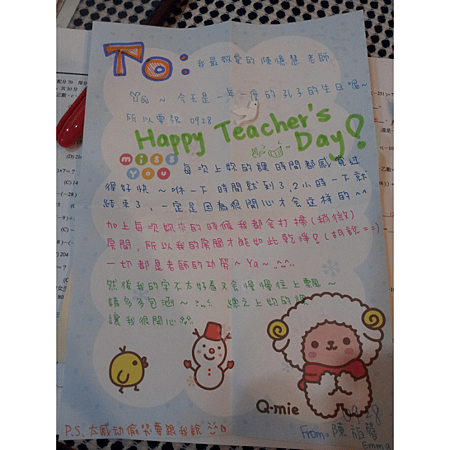 To: 我最敬愛的陳憶慧老師
Ya~ 今天是一年一度的孔子的生日喔~
所以要說 0928
Happy Teacher's Day!
miss you
每次上妳的課時間都感覺過
得好快~咻一下時間就到了,2小時一下就
結束了,一定是因為很開心才會這樣的^^
加上每次妳來的時候我都會打掃(稍微)
房間,所以我的房間才能如此乾淨?(胡說==)
一切都是老師的功勞~Ya~
然後我的字不太好看又會慢慢往上飄~
請多多包涵~ 總之上妳的課
讓我很開心
Q-mie
0928
From: 陳
Emma
P.S. 太感动偷哭要跟我說